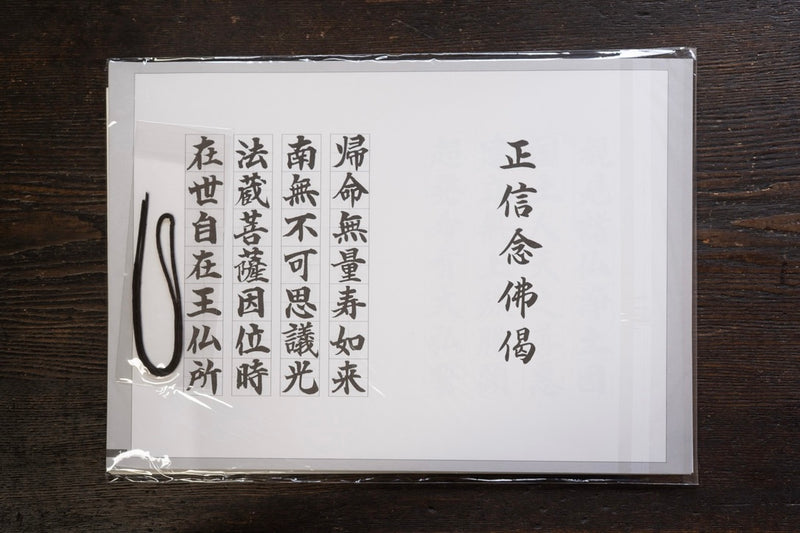 正信念佛偈
帰命無量寿如来
南無不可思議光
法蔵菩薩因位時
在世自在王仏所